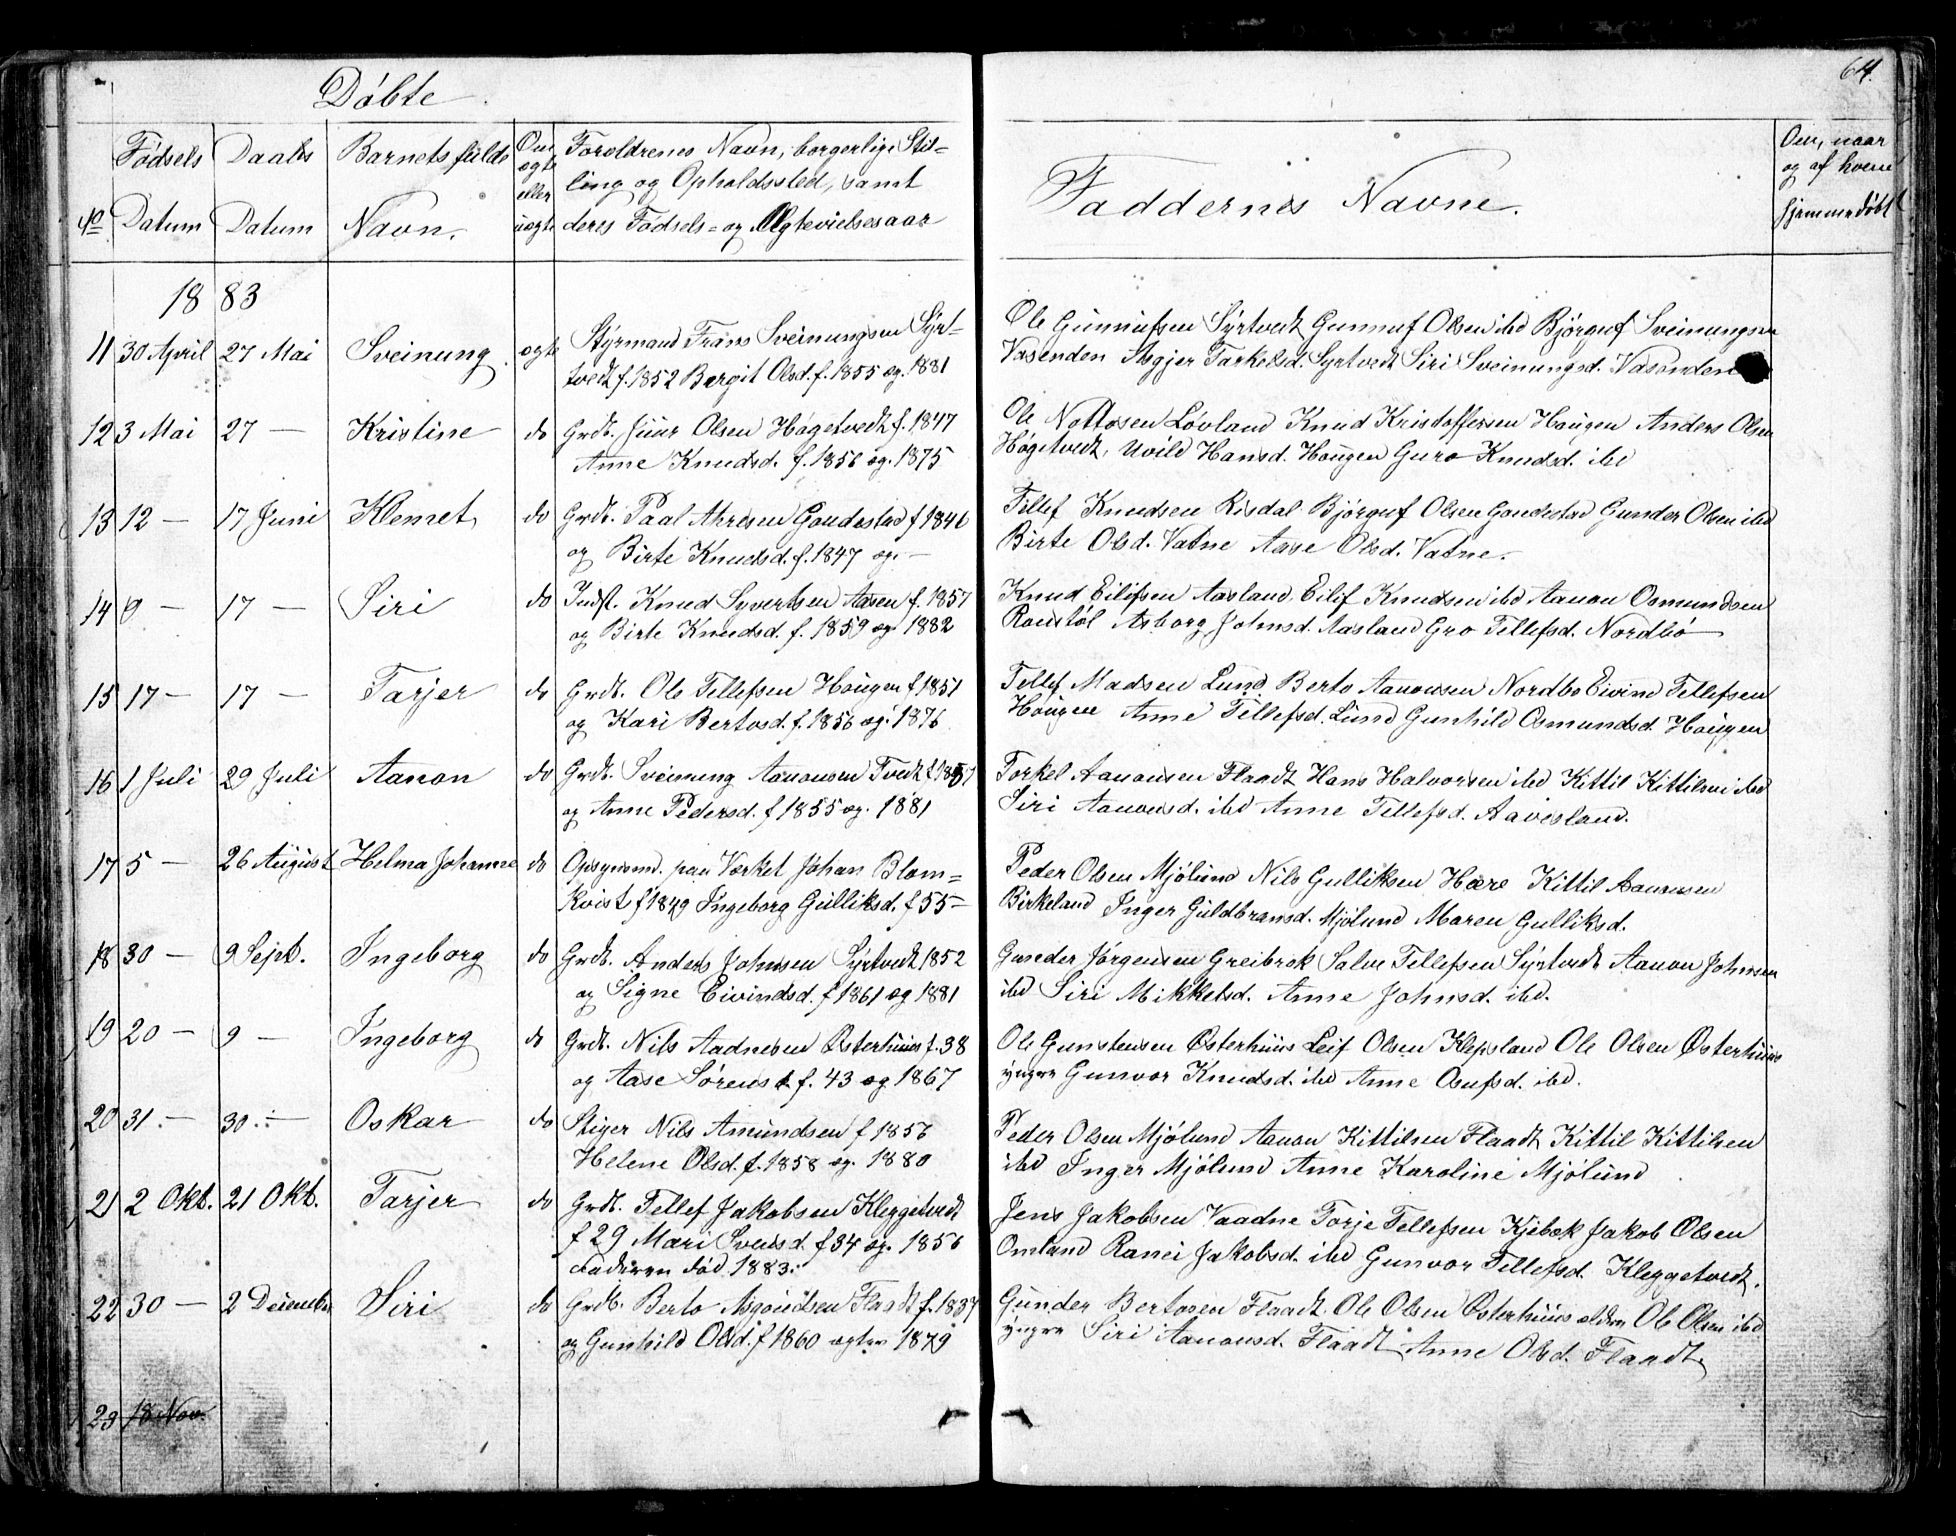 Döbte.
64.
Födsels Daabs Barnets fulde Om Foreldrenes Navn, borgerlige Stil-
ægte ling og Opholdssted, samt
eller
No Datum Datum Navn. uægte deres Födsels- og Ægtevielsesaar
Faddernes Navne.
Om, naar
og af hvem
hjemmedøbt
1883
11 30 April 27 Mai Sveinung ægte Styrmand Frans Sveinungsen Syrt-
tvedt f. 1852 Bergit Olsd. f. 1855 æg. 1881
Ole Gunnufsen Syrtvedt Gunnuf Olsen ibd Björguf Sveinungsen
Vasenden Asgjer Tarkelsd. Syrtvedt Siri Sveinungsd. Vasenden
12 3 Mai 27 — Kristine do Grdt. Juur Olsen Högetvedt f. 1847
Anne Knudsd. f. 1856 æg. 1875
Ole Nottosen Lövland Knud Kristoffersen Hougen Anders Olsen
Högetvedt, Uvild Hansd. Hougen Guro Knudsd. ibd
13 12 — 17 Juni Klemet do Grdt. Paal Ahresen Gaudestad f 1846
og Birte Knudsd. f. 1847 æg. —
Tellef Knudsen Risdal Björguf Olsen Gaudestad Gunder Olsen ibd
Birte Olsd. Vatne Aase Olsd. Vatne.
14 9 — 17 — Siri do Indst. Knud Syvertsen Aasen f. 1857
og Birte Knudsd. f. 1859 æg. 1882
Knud Eilifsen Aasland, Eilif Knudsen ibd Aanon Osmundsen
Roustöl Asborg Johnsd. Aasland Gro Tellefsd. Nordbö
15 17 — 17 — Tarjer do Grdt. Ole Tellefsen Hougen f. 1851
og Kari Bertosd. f. 1856 æg. 1876
Tellef Madsen Lund Berto Aanonsen Nordbo Eivind Tellefsen
Hougen Anne Tellefsd. Lund Gunhild Osmundsd. Hougen
16 1 Juli 29 Juli Aanon do Grdt. Sveinung Aanonsen Tvedt f 1857
og Anne Pedersd. f 1855 æg. 1881
Torkel Aanonsen Flaadt Hans Halvorsen ibd Kittil Kittilsen ibd
Siri Aanonsd. ibd Anne Tellefsd. Aavesland.
17 5 — 26 August Helma Johanne do Opsynsmd. paa Værket Johan Blom-
kvist f 1849 Ingeborg Gulliksd. f 55 —
Peder Olsen Mjölund Nils Gulliksen Hære Kittil Aanonsen
Birkeland Inger Guldbransd. Mjölund Maren Gulliksd.
18 30 — 9 Sept. Ingeborg do Grdt. Anders Johnsen Syrtvedt 1852
og Signe Eivindsd. f 1861 æg 1881
Gunder Jörgensen Greibrok Salve Tellefsen Syrtvedt Aanon Johnsen
ibd Siri Mikkelsd. Anne Johnsd. ibd.
19 20 — 9 — Ingeborg do Grdt. Nils Aadnesen Østerhuus f. 38
og Aase Sörensd. f. 43 æg 1867
Ole Gunstensen Østerhuus Leif Olsen Klepsland Ole Olsen Østerhuus
yngre Gunvor Knudsd. ibd Anne Osufsd. ibd.
20 31. — 30. — Oskar do Stiger Nils Amundsen f 1856
Helene Olsd. f. 1858 æg. 1880
Peder Olsen Mjölund Aanon Kittilsen Flaadt Kittil Kittilsen
ibd Inger Mjölund Anne Karoline Mjölund
21 2 Okt. 21 Okt. Tarjer do Grdt. Tellef Jakobsen Kleggetvedt
f 29 Mari Svensd. f 34 æg. 1856
Faderen död 1883.
Jens Jakobsen Vaadne Torje Tellefsen Kjebæk Jakob Olsen
Omland Ranei Jakobsd. ibd Gunvor Tellefsd. Kleggetvedt.
22 30 — 2 Decembr Siri do Grdt. Berto Asgoudsen Flaadt f. 1837
og Gunhild Olsd. f 1860 ægtev 1879
Gunder Bertosen Flaadt Ole Olsen Østerhuus ældre Ole Olsen ibd
yngre Siri Aanonsd. Flaadt Anne Olsd. Flaadt
23 18 Nov.